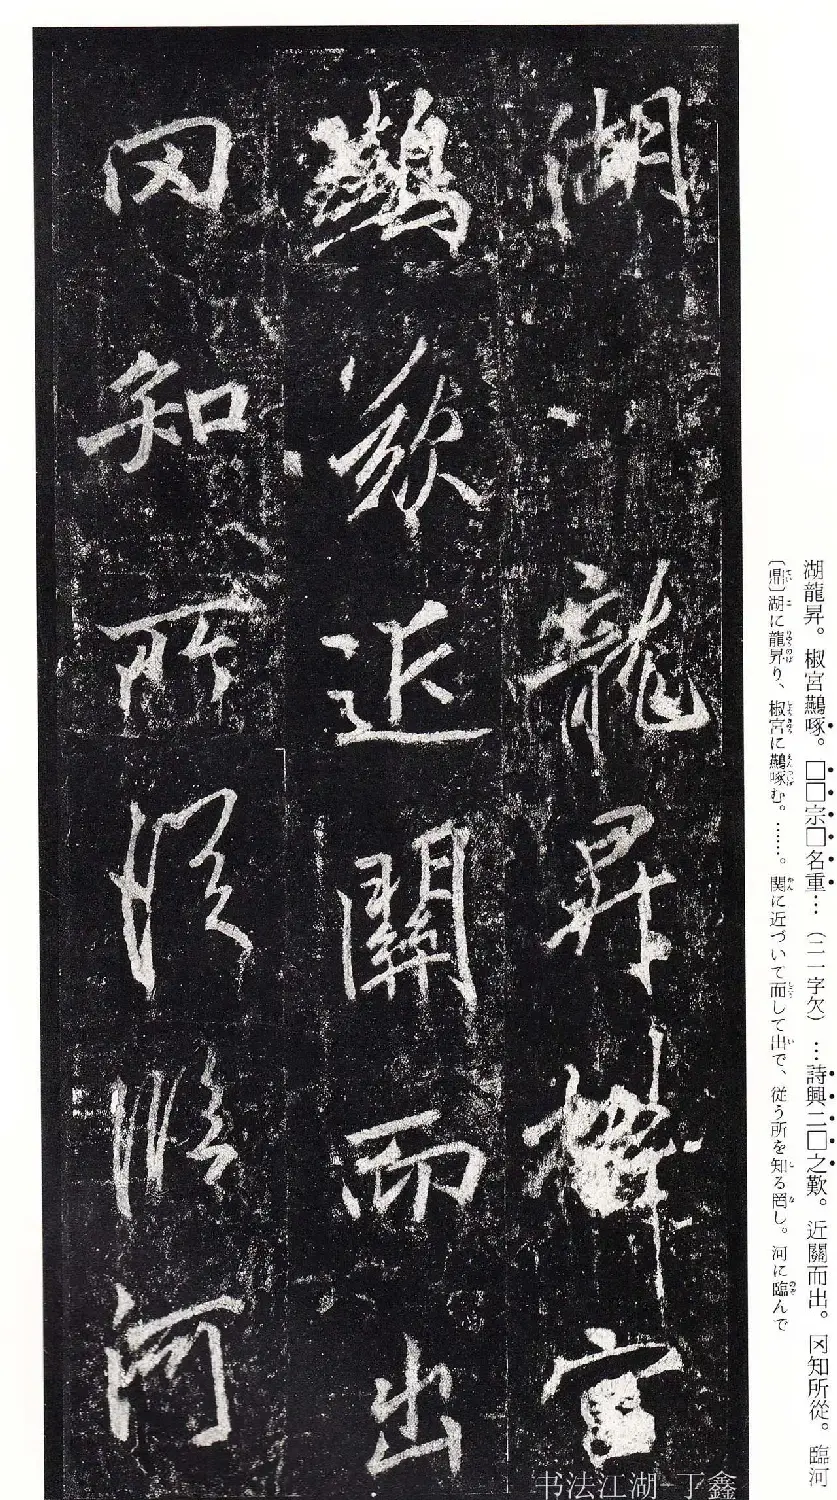 湖龍昇。椒宮鷰啄。□□宗□名重…（二一字欠）…詩興二□之歎。近關而出。冈知所從。臨河
〔鼎〕湖に龍昇り、椒宮に鷰啄む。……。関に近づいて而して出で、従う所を知る罔し。河に臨んで
湖龍昇椒宮
鷰歎近關而出
冈知所從臨河
书法江湖-丁鑫